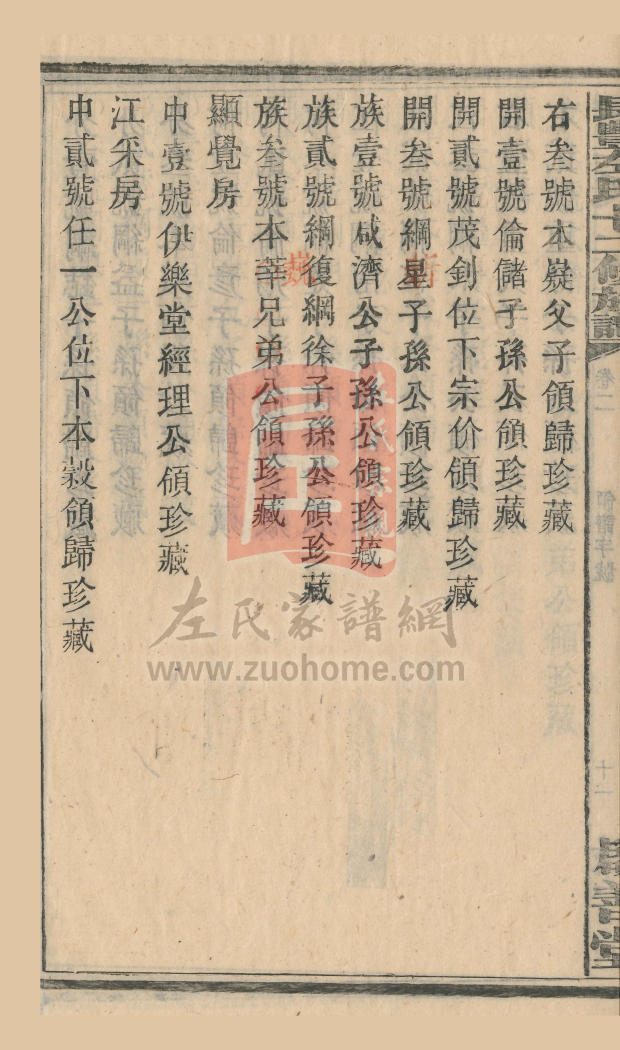 右叁號本嶷父子領歸珍藏
開壹號倫儲子孫公領珍藏
開貳號茂釗位下宗价領歸珍藏
開叁號綱星子孫公領珍藏
族壹號咸濟公子孫公領珍藏
族貳號綱復綱徐子孫公領珍藏
族叁號本莘兄弟公領珍藏
顯覺房
中壹號伊樂堂經理公領珍藏
江采房
中貳號任一公位下本穀領歸珍藏
卷二
十一
善堂
左氏家譜網
www.zuohome.com